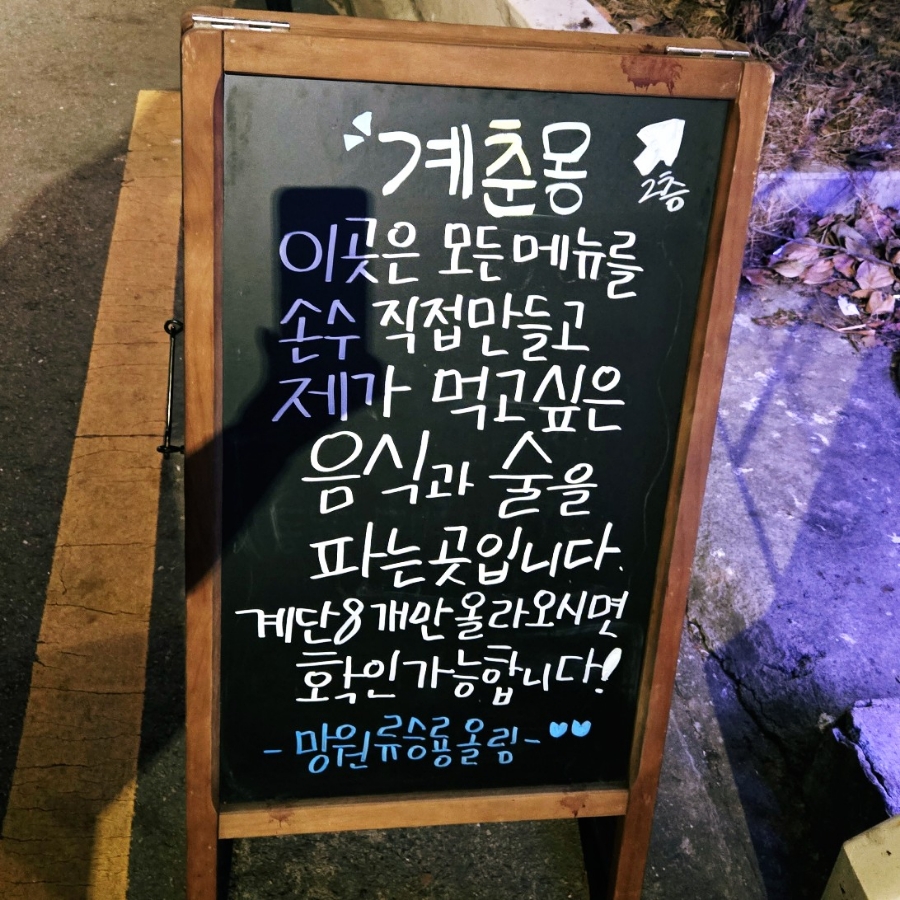 계춘몽
2층
이곳은 모든메뉴를
손수 직접만들고
제가 먹고싶은
음식과 술을
파는곳입니다.
계단8개만올라오시면
확인가능합니다!
-망원류승룡올림-